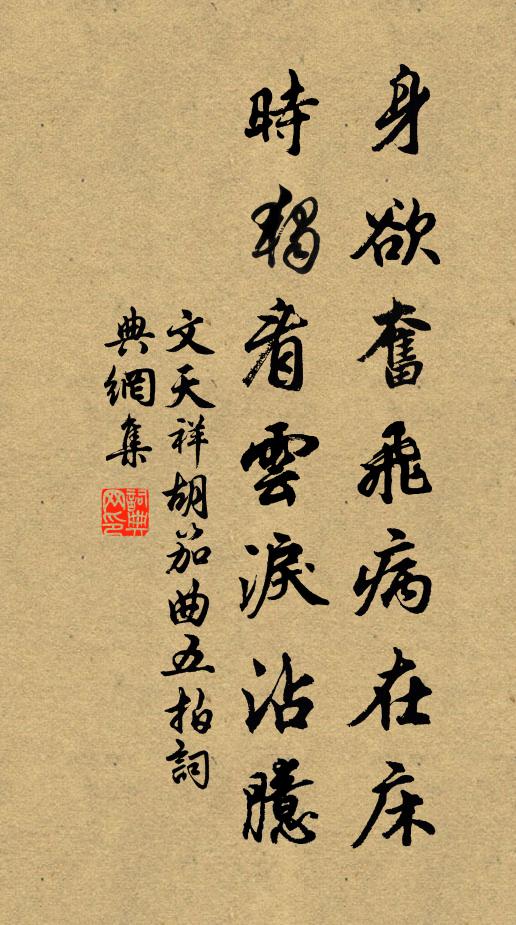 身欲奮飛病在床
時獨看雲淚沾臆
文天祥胡笳曲五拍詞
典網集
詞典
网印